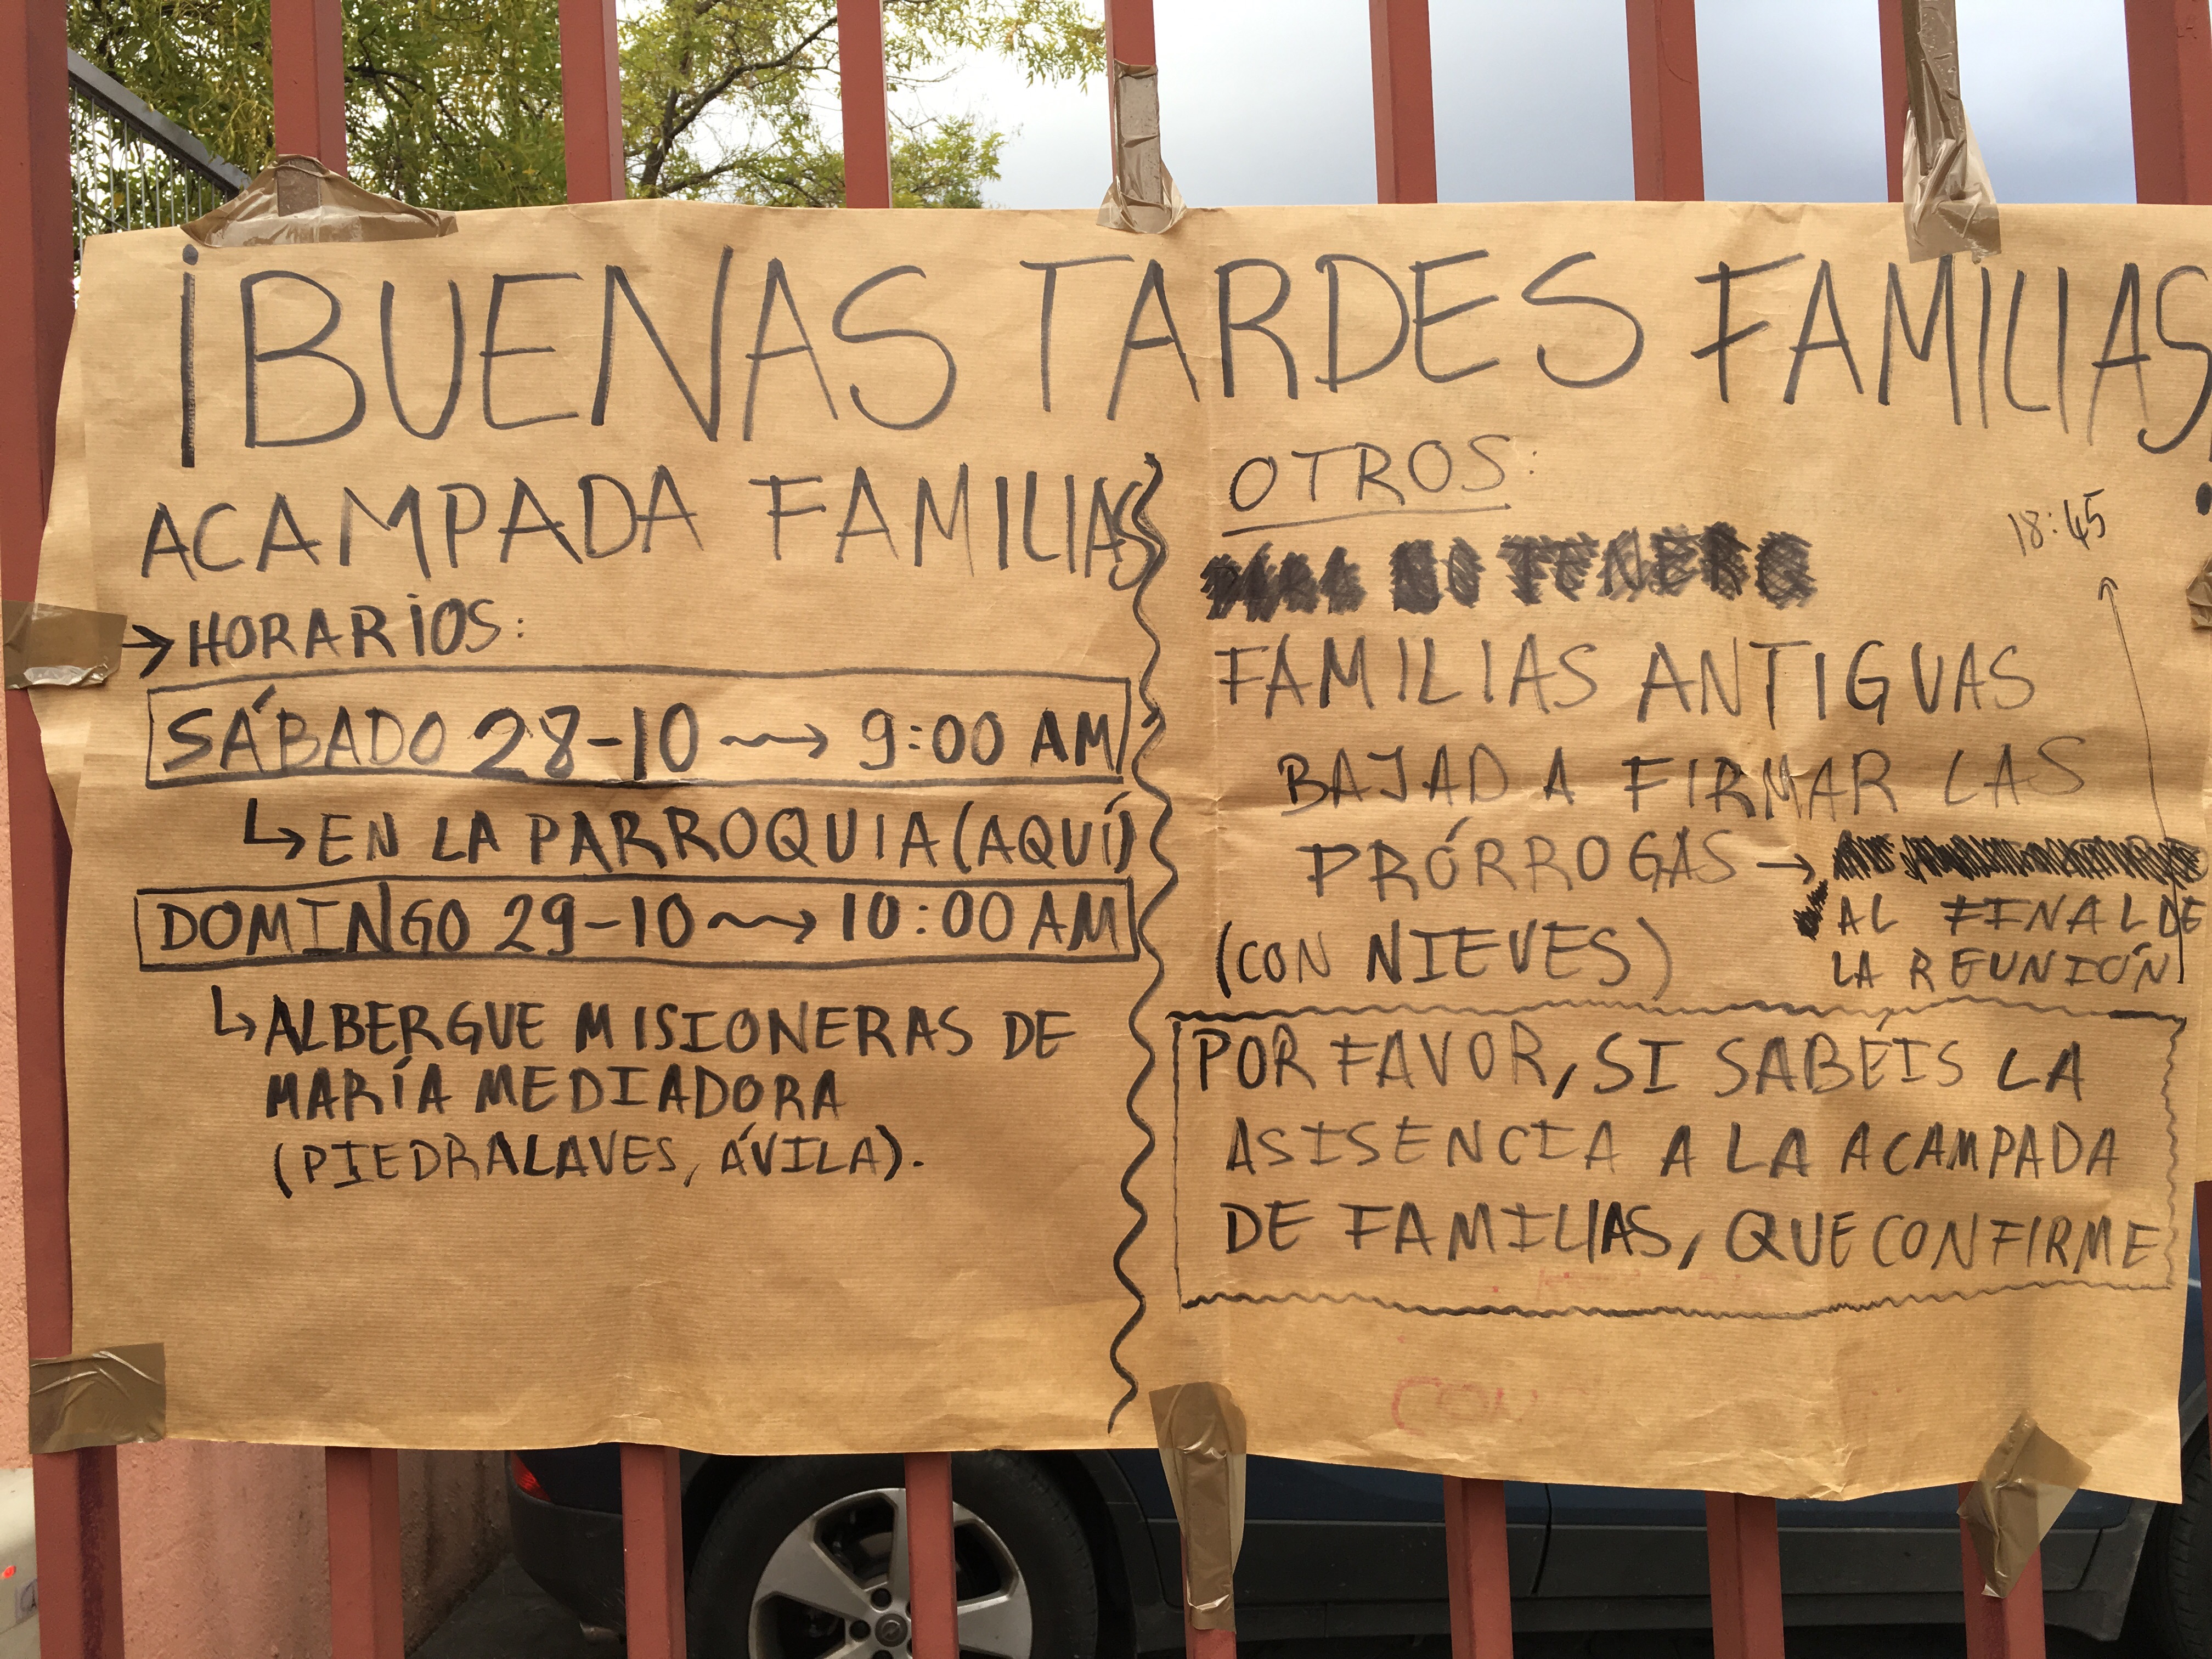 ¡BUENAS TARDES FAMILIAS!
ACAMPADA FAMILIAS
→ HORARIOS:
SÁBADO 28-10 → 9:00 AM
↳ EN LA PARROQUIA (AQUÍ)
DOMINGO 29-10 → 10:00 AM
↳ ALBERGUE MISIONERAS DE
MARÍA MEDIADORA
(PIEDRALAVES, ÁVILA).
OTROS:
18:45
FAMILIAS ANTIGUAS
BAJAD A FIRMAR LAS
PRÓRROGAS →
AL FINAL DE
LA REUNIÓN
(CON NIEVES)
POR FAVOR, SI SABÉIS LA
ASISENCIA A LA ACAMPADA
DE FAMILIAS, QUE CONFIRME
CON